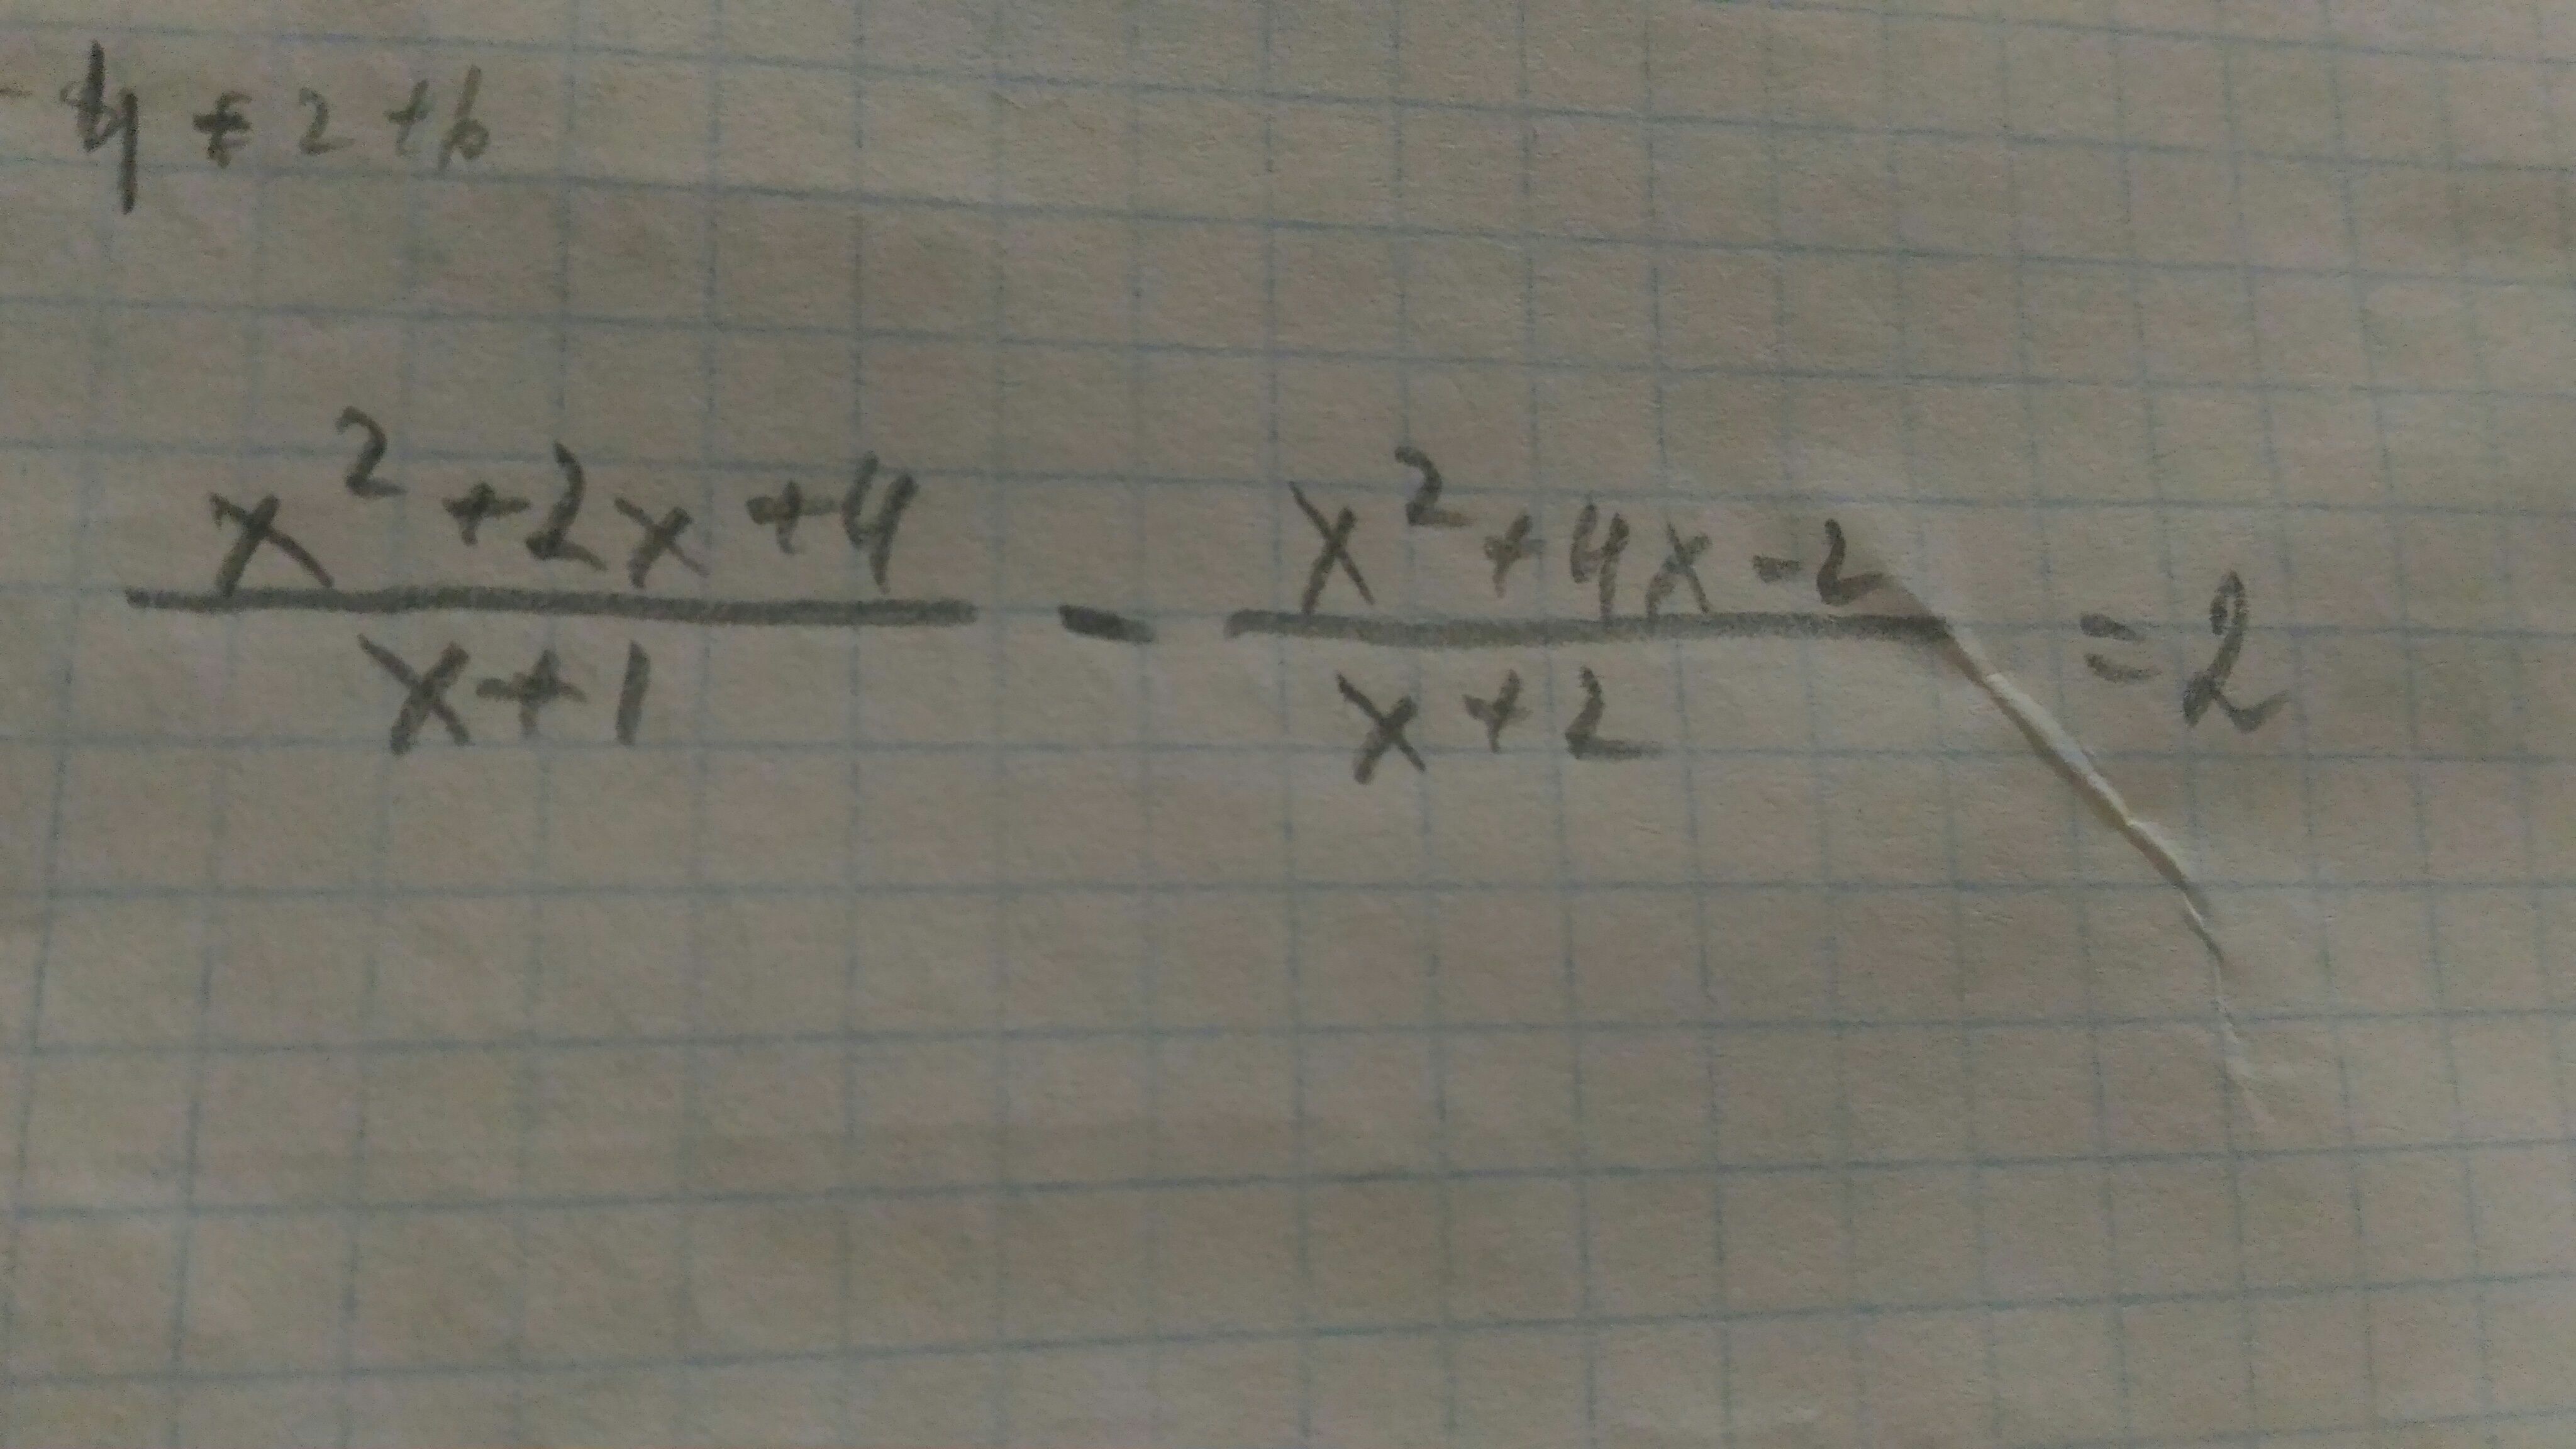 + 2 + 6
x² + 2x + 4 / x + 1 - x² + 4x - 2 / x + 2 = 2